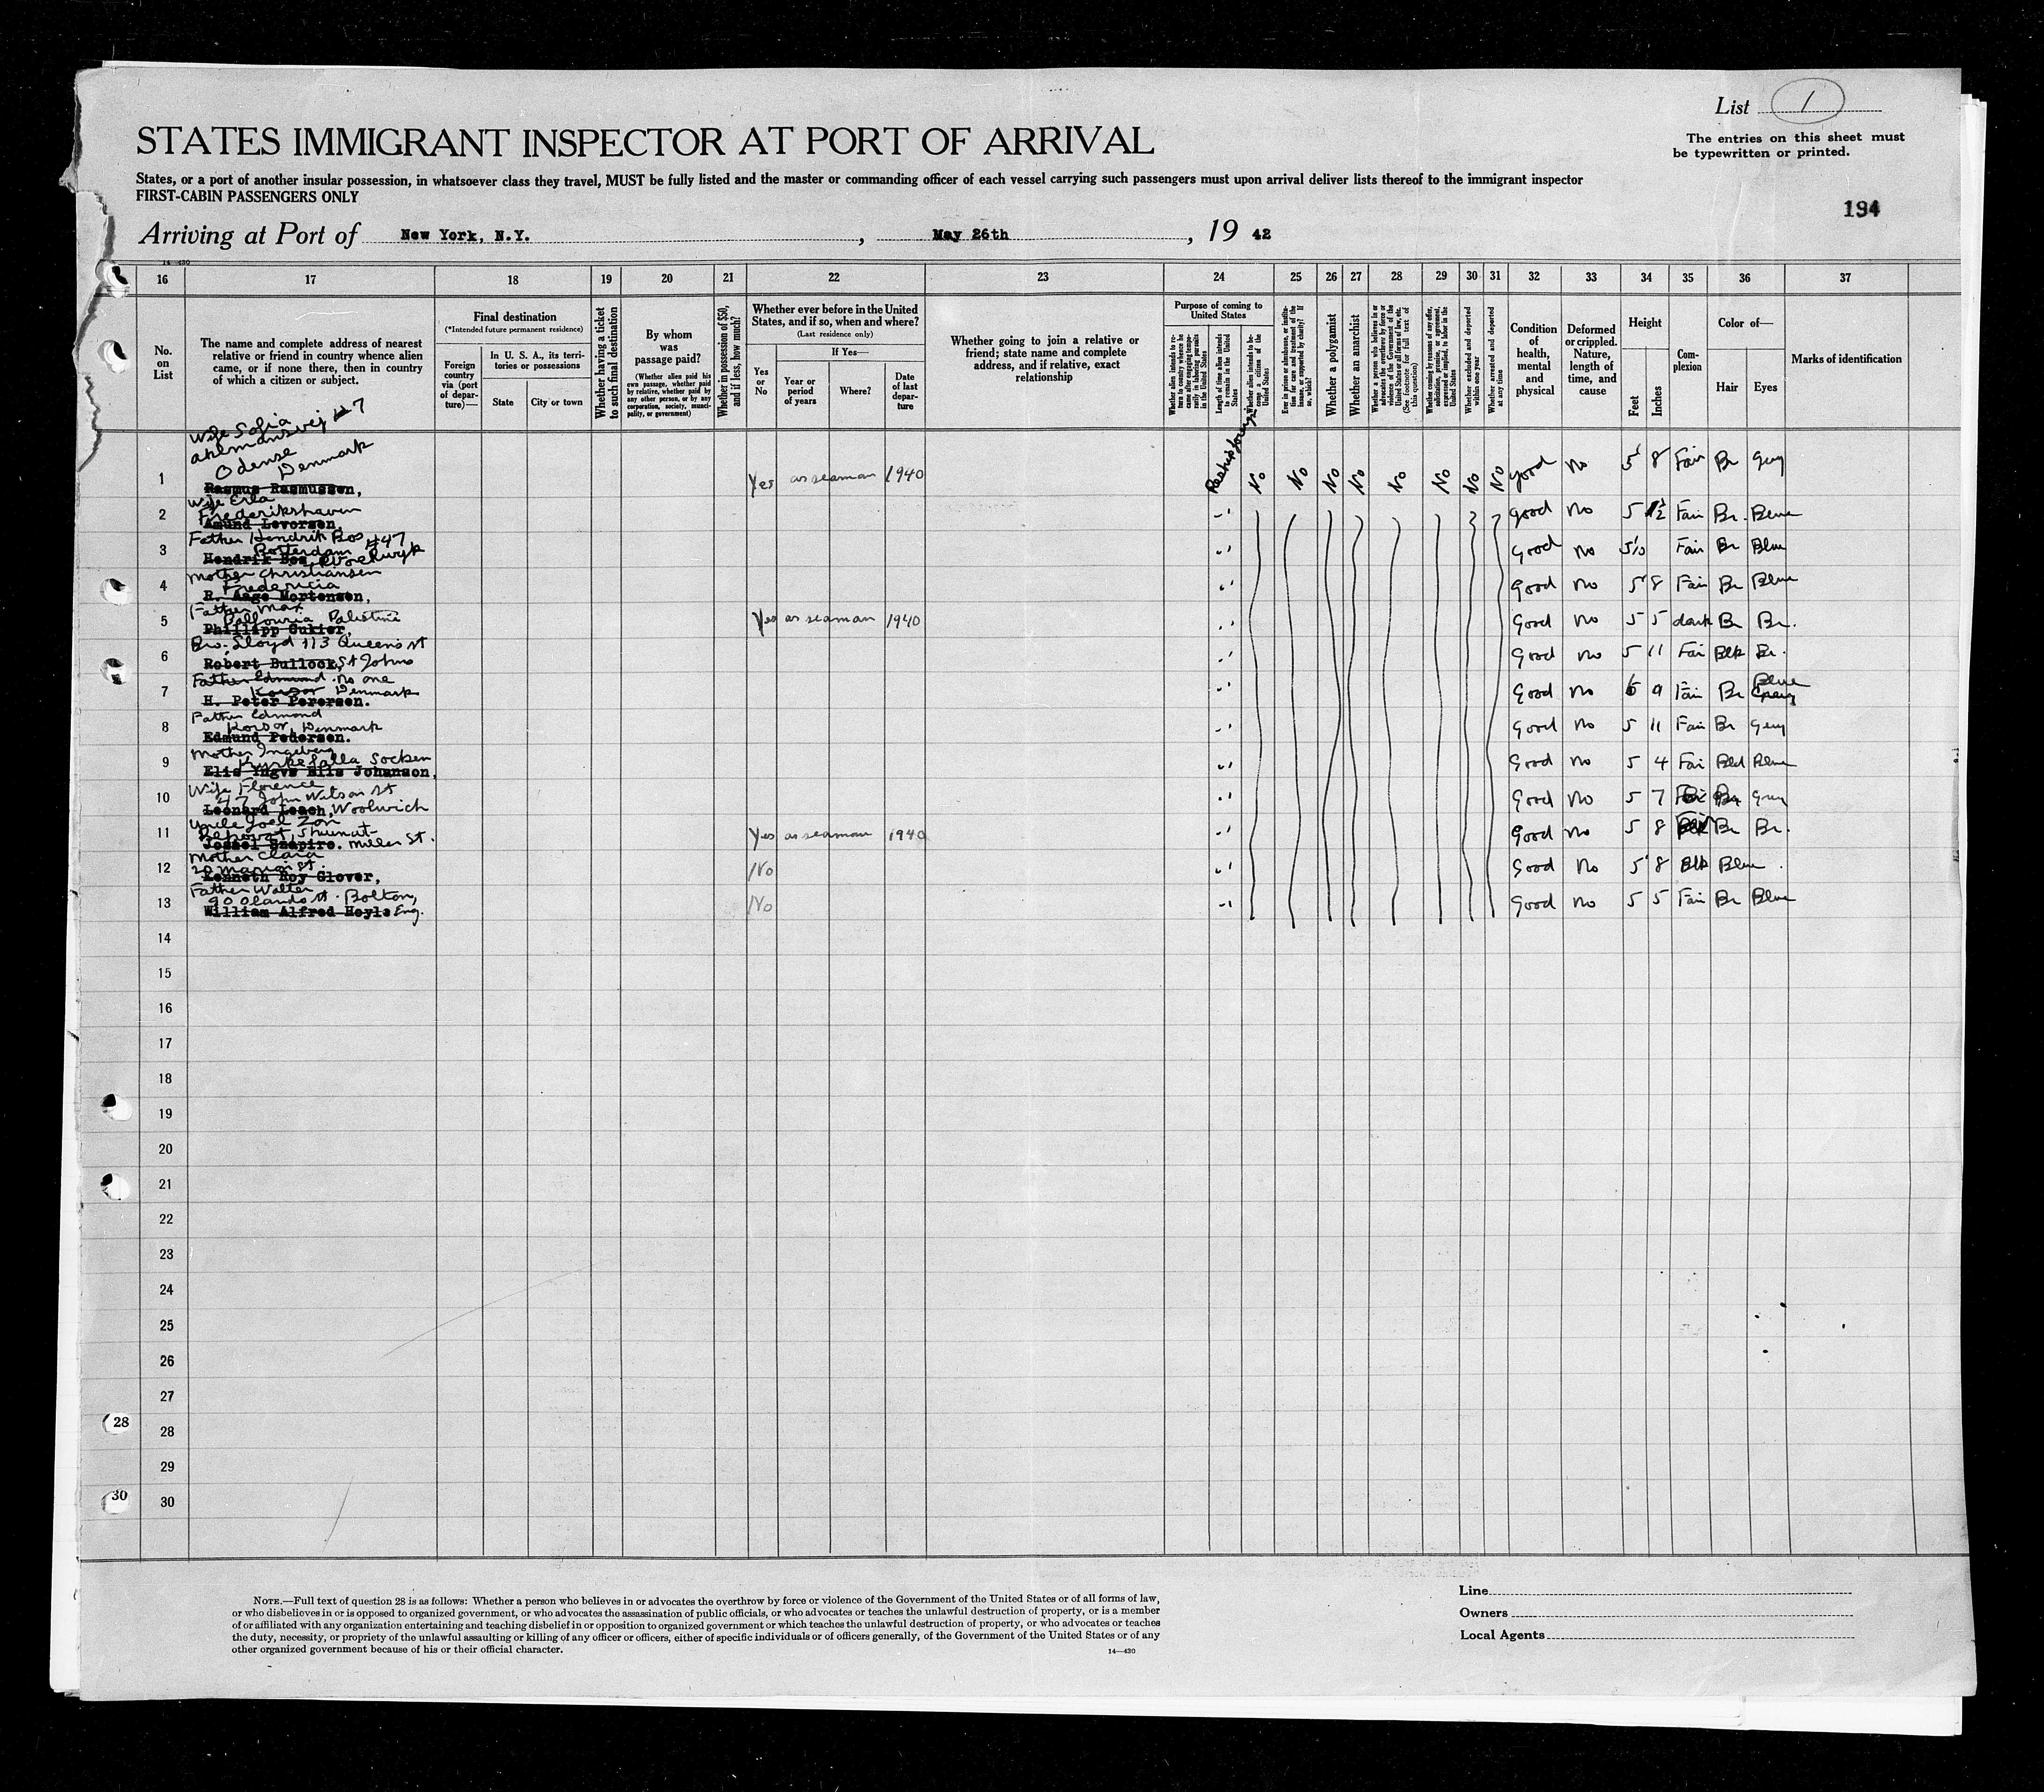 List 1
STATES IMMIGRANT INSPECTOR AT PORT OF ARRIVAL
The entries on this sheet must
be typewritten or printed.
States, or a port of another insular possession, in whatsoever class they travel, MUST be fully listed and the master or commanding officer of each vessel carrying such passengers must upon arrival deliver lists thereof to the immigrant inspector
FIRST-CABIN PASSENGERS ONLY
194
Arriving at Port of New York, N.Y., May 26th, 19 42
14-430
16 17 18 19 20 21 22 23 24 25 26 27 28 29 30 31 32 33 34 35 36 37
No. on List
The name and complete address of nearest relative or friend in country whence alien came, or if none there, then in country of which a citizen or subject.
Final destination
(*Intended future permanent residence)
Foreign country via (port of departure)—
In U. S. A., its territories or possessions
State
City or town
Whether having a ticket to such final destination
By whom was passage paid?
(Whether alien paid his own passage, whether paid by relative, whether paid by any other person, or by any corporation, society, municipality, or government)
Whether in possession of $50, and if less, how much?
Whether ever before in the United States, and if so, when and where?
(Last residence only)
Yes or No
If Yes—
Year or period of years
Where?
Date of last departure
Whether going to join a relative or friend; state name and complete address, and if relative, exact relationship
Purpose of coming to United States
Whether alien intends to return to country whence he came after engaging temporarily in laboring pursuits in the United States
Length of time alien intends to remain in the United States
Whether alien intends to become a citizen of the United States
Ever in prison or almshouse, or institution for care and treatment of the insane, or supported by charity? If so, which?
Whether a polygamist
Whether an anarchist
Whether a person who believes in or advocates the overthrow by force or violence of the Government of the United States or all forms of law, etc. (See footnote for full text of this question)
Whether coming by reasons of any offer, solicitation, promise, or agreement, expressed or implied, to labor in the United States
Whether excluded and deported within one year
Whether arrested and deported at any time
Condition of health, mental and physical
Deformed or crippled. Nature, length of time, and cause
Height
Feet
Inches
Complexion
Color of—
Hair
Eyes
Marks of identification
Wife Sofia
#7
Odense
Denmark
1 Rasmus Rasmussen, Yes as seaman 1940 No No No No No No No No Good No 5 8 Fair Br Grey
Wife Erla
Frederikshavn
2 Amund Levorsen, Good No 5 Fair Br. Blue
Father Hendrik Bos #47
Rotterdam
3 Hendrik Bos Good No 5 10 Fair Br Blue
Mother Christiansen
Fredericia
4 R. Aage Mortensen, Good No 5 8 Fair Br Blue
Father Max
Balfouria Palestine
5 Phillipp Cukier, Yes as seaman 1940 Good No 5 5 dark Br Br.
Bro: Lloyd 113 Queens St
6 Robert Bullock, St Johns Good No 5 11 Fair Blk Br.
Father Edmund. No one
Korsor Denmark
7 H. Peter Perersen. Good No 9 Fair Br Blue
Father Edmond
Korsor, Denmark
8 Edmund Pedersen. Good No 5 11 Fair Br Grey
Mother Ingeberg
9 Elis Yngve Elis Johanson, Good No 5 4 Fair Bld Blue
Wife Florence
47 John Wilson St
10 Leonard Leach, Woolwich Good No 5 7 Br Grey
Uncle Joel Zon
11 Jossel Shapiro. Miller St. Yes as seaman 1940 Good No 5 8 Br Br.
Mother Clara
20 Marion St.
12 Kenneth Roy Glover, No Good No 5 8 Blk Blue
Father Walter
90 Olando St. Bolton,
13 William Alfred Hoyle Eng. No Good No 5 5 Fair Br Blue
14
15
16
17
18
19
20
21
22
23
24
25
26
27
28 28
29
30 30
NOTE.—Full text of question 28 is as follows: Whether a person who believes in or advocates the overthrow by force or violence of the Government of the United States or of all forms of law,
or who disbelieves in or is opposed to organized government, or who advocates the assassination of public officials, or who advocates or teaches the unlawful destruction of property, or is a member
of or affiliated with any organization entertaining and teaching disbelief in or opposition to organized government or which teaches the unlawful destruction of property, or who advocates or teaches
the duty, necessity, or propriety of the unlawful assaulting or killing of any officer or officers, either of specific individuals or of officers generally, of the Government of the United States or of any
other organized government because of his or their official character.
14—430
Line
Owners
Local Agents